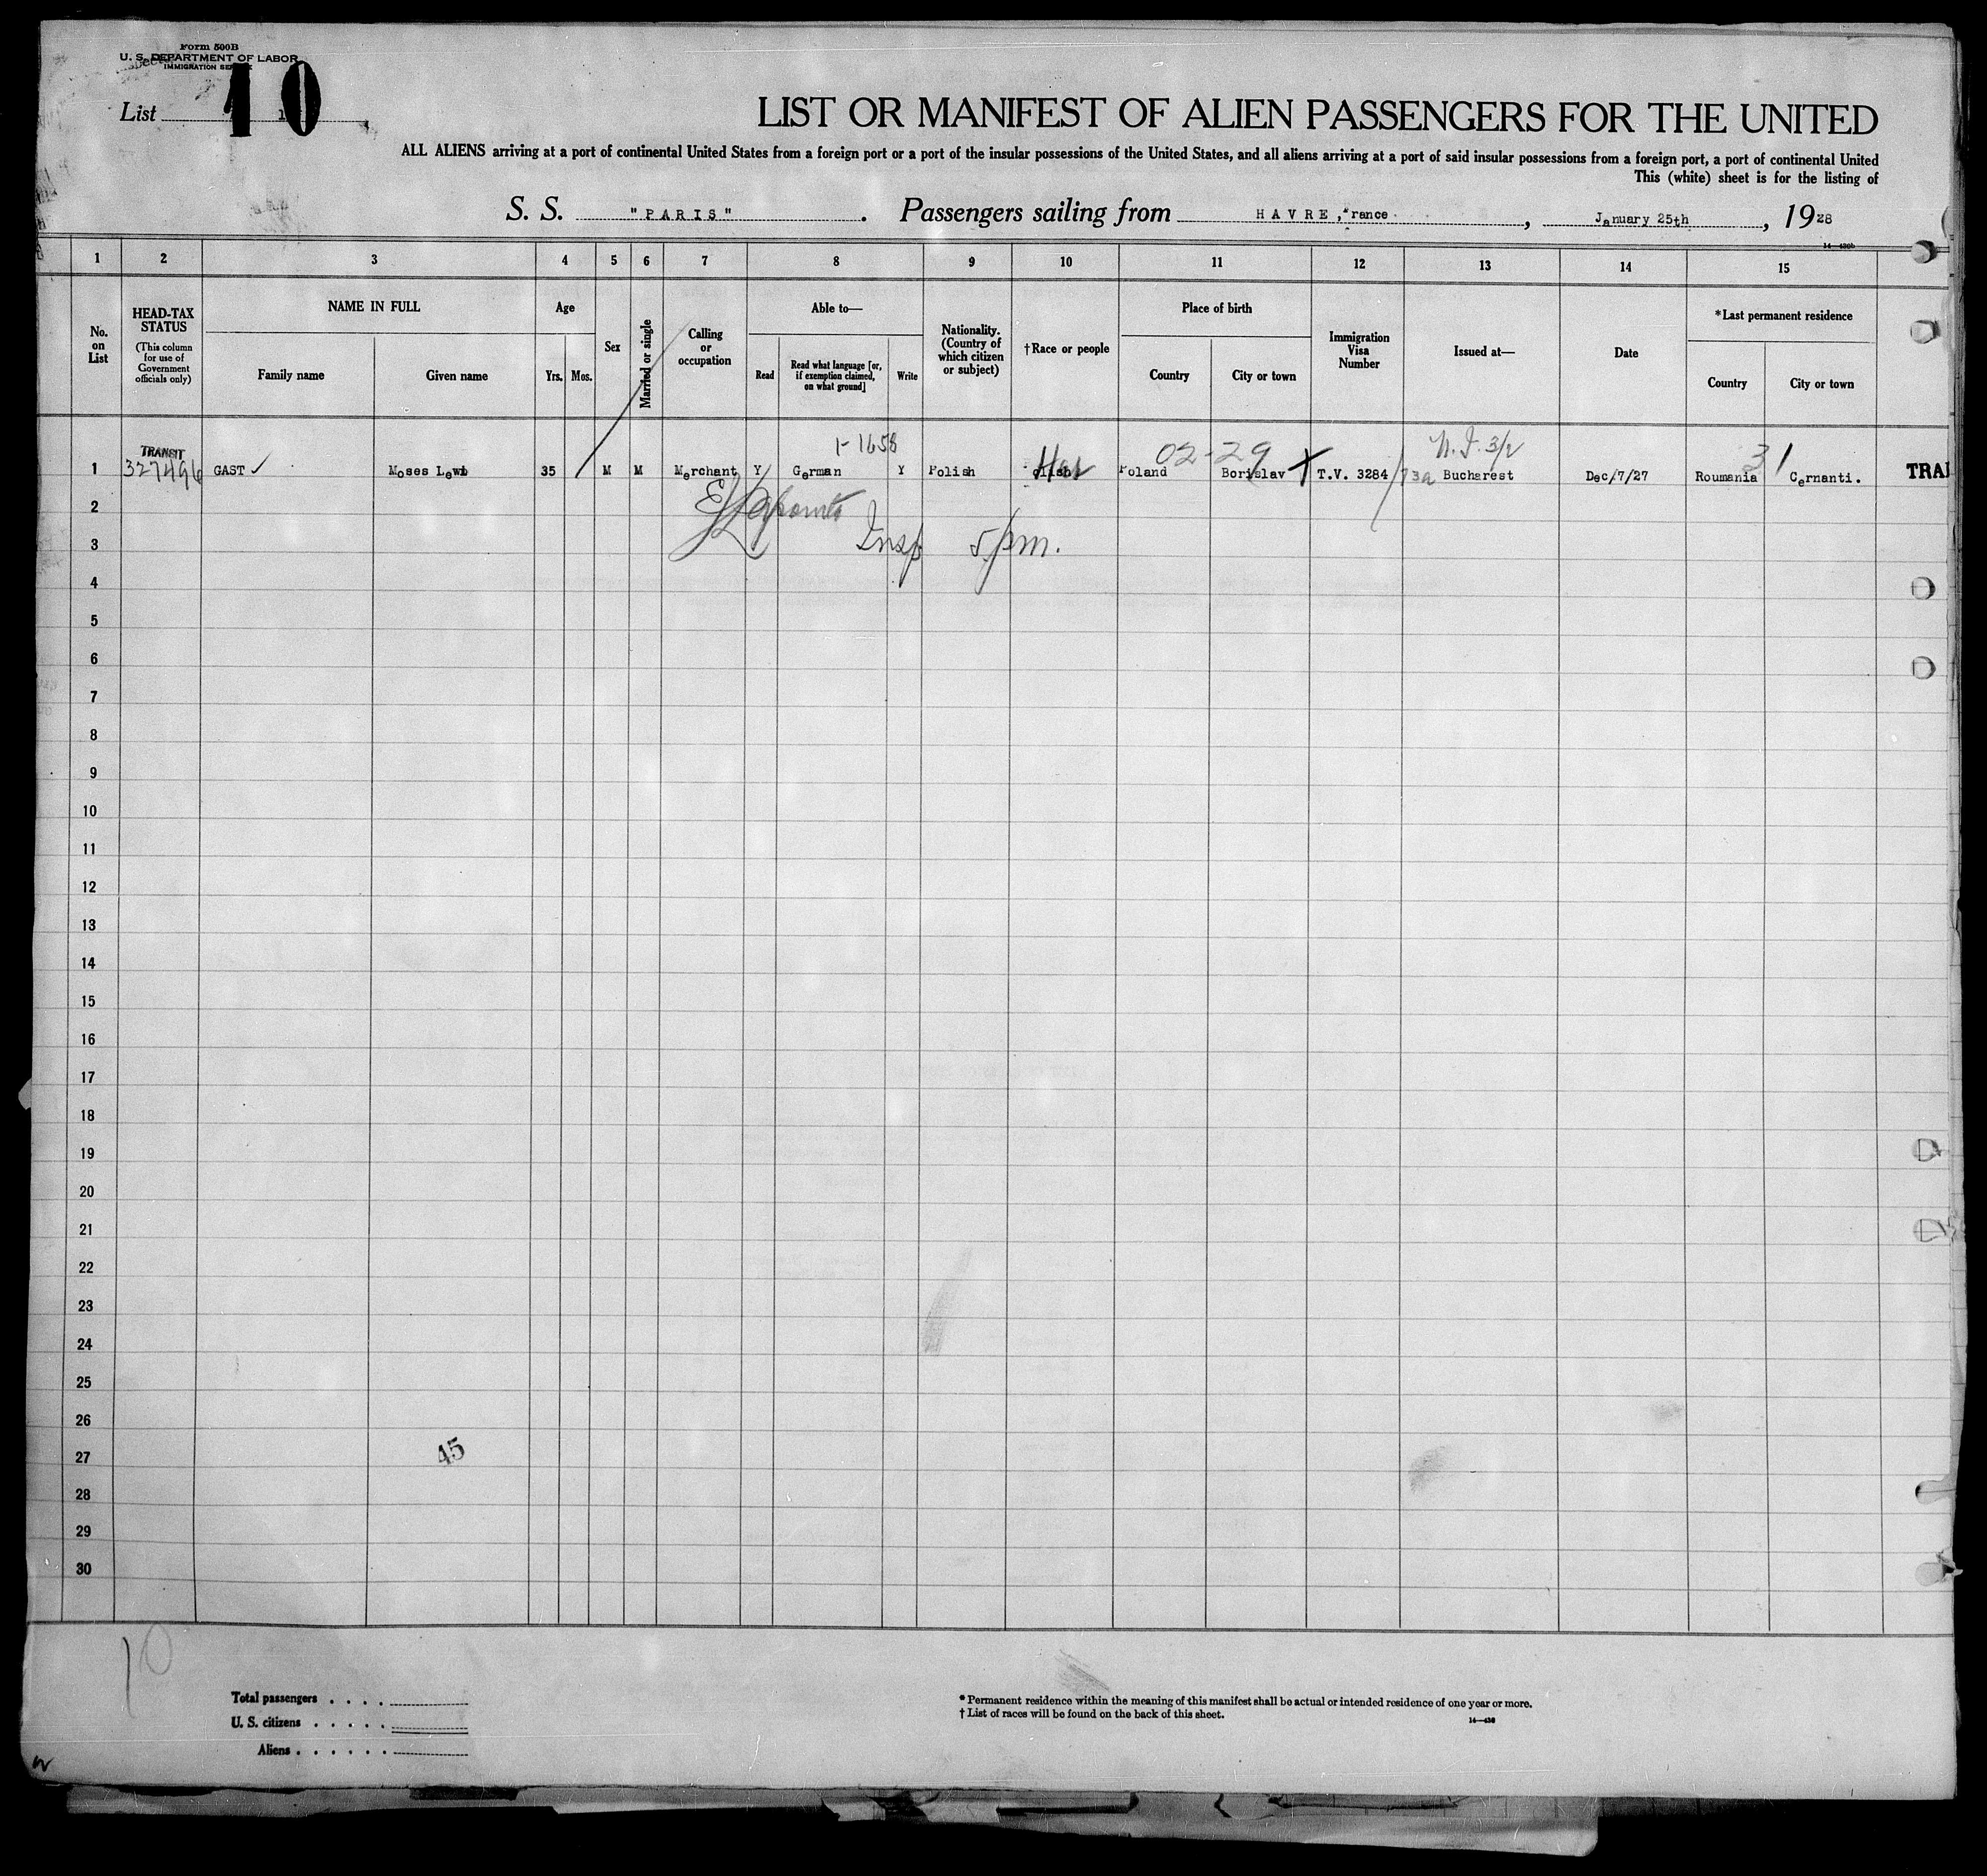 Form 500B
U. S. DEPARTMENT OF LABOR
IMMIGRATION
List 10
LIST OR MANIFEST OF ALIEN PASSENGERS FOR THE UNITED
ALL ALIENS arriving at a port of continental United States from a foreign port or a port of the insular possessions of the United States, and all aliens arriving at a port of said insular possessions from a foreign port, a port of continental United
This (white) sheet is for the listing of
S. S. "PARIS". Passengers sailing from HAVRE, rance, January 25th, 1928
1 2 3 4 5 6 7 8 9 10 11 12 13 14 15
No. on List
HEAD-TAX STATUS
(This column for use of Government officials only)
NAME IN FULL
Family name Given name
Age
Yrs. Mos.
Sex
Married or single
Calling or occupation
Able to—
Read
Read what language [or, if exemption claimed, on what ground]
Write
Nationality. (Country of which citizen or subject)
†Race or people
Place of birth
Country City or town
Immigration Visa Number
Issued at—
Date
*Last permanent residence
Country City or town
TRANSIT 1-1658 02-29 31
1 327496 GAST ✓ Moses Lewi 35 M M Merchant Y German Y Polish Poland Borislav X T.V. 3284 Bucharest Dec/7/27 Roumania Cernanti. TRA
2
3 Insp 5 pm.
4
5
6
7
8
9
10
11
12
13
14
15
16
17
18
19
20
21
22
23
24
25
26
27 45
28
29
30
10
Total passengers . . . .
U. S. citizens . . . . .
Aliens . . . . . .
* Permanent residence within the meaning of this manifest shall be actual or intended residence of one year or more.
† List of races will be found on the back of this sheet.